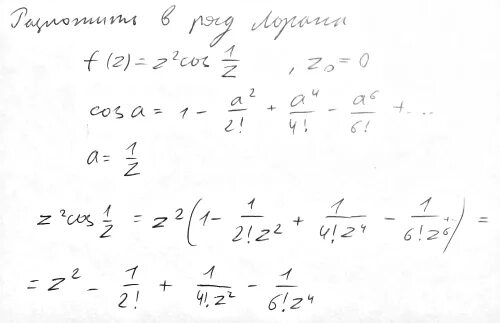 Разложить в ряд Лорана
f(z) = z² cos 1/z , z₀ = 0
cos a = 1 - a²/2! + a⁴/4! - a⁶/6! + ...
a = 1/z
z² cos 1/z = z² (1 - 1/(2! z²) + 1/(4! z⁴) - 1/(6! z⁶) + ..) =
= z² - 1/2! + 1/(4! z²) - 1/(6! z⁴)